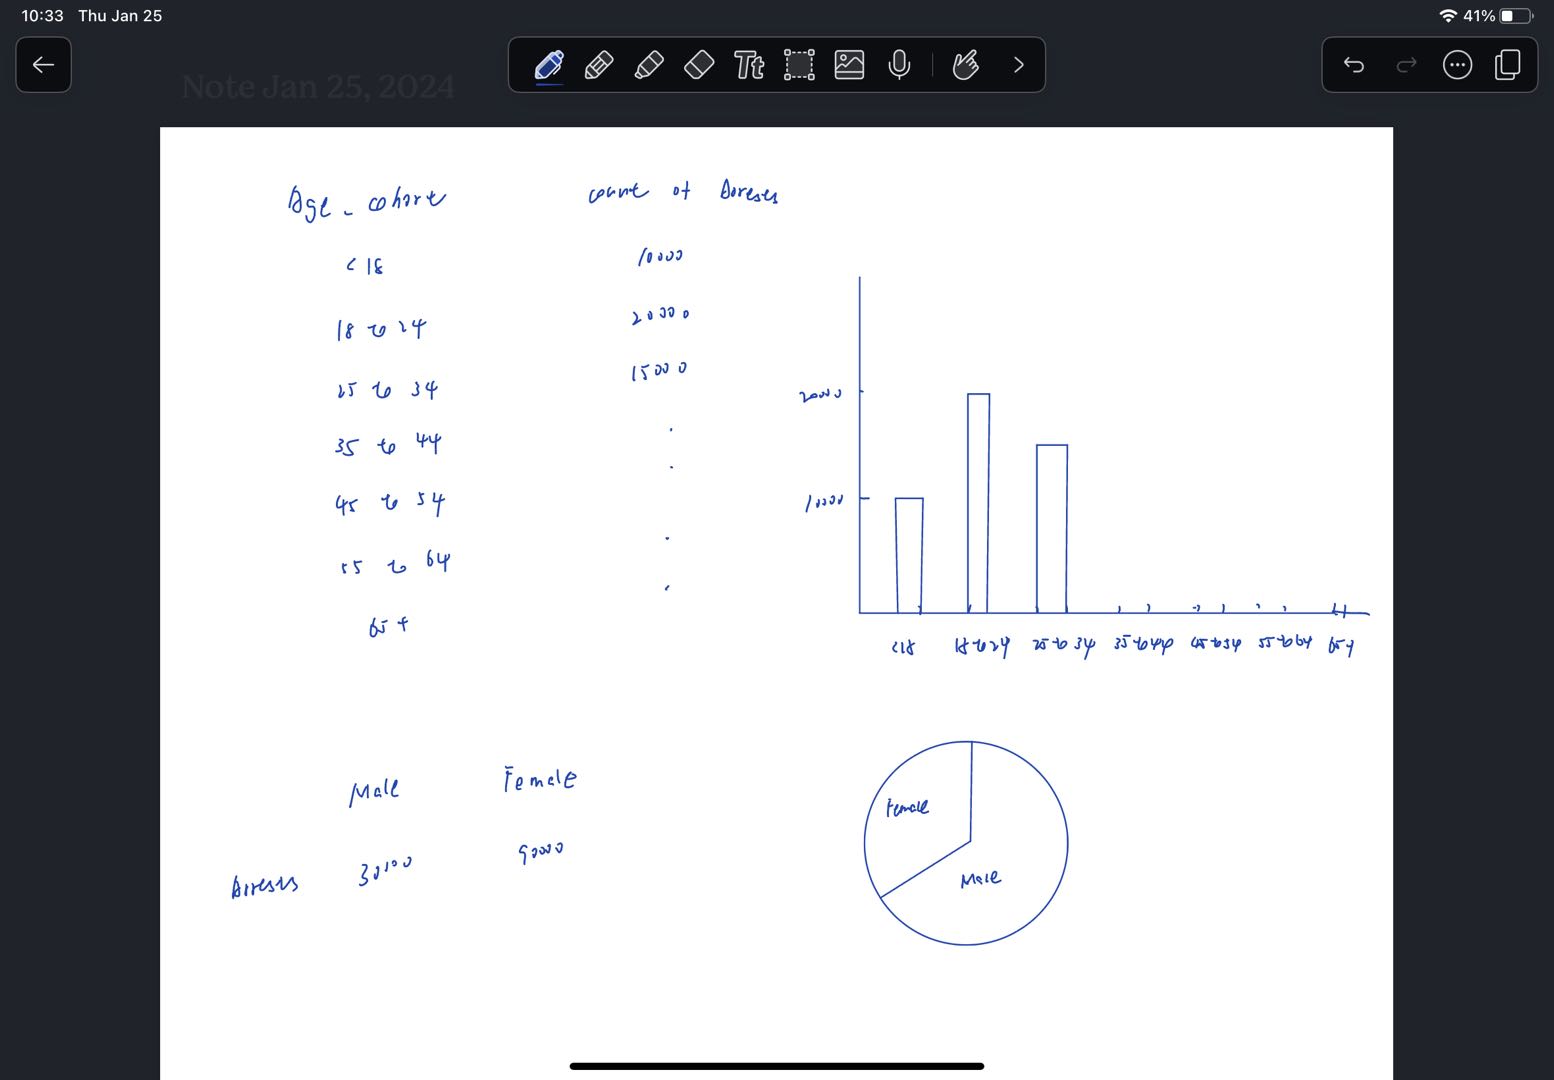 10:33 Thu Jan 25
41%
Note Jan 25, 2024
Tt
Age_cohort
count of Arrests
<18
10000
18 to 24
20000
25 to 34
15000
35 to 44
45 to 54
55 to 64
65+
20000
10000
<18 18 to 24 25 to 34 35 to 44 45 to 54 55 to 64 65+
Male Female
Arrests 30100 90000
Female
Male